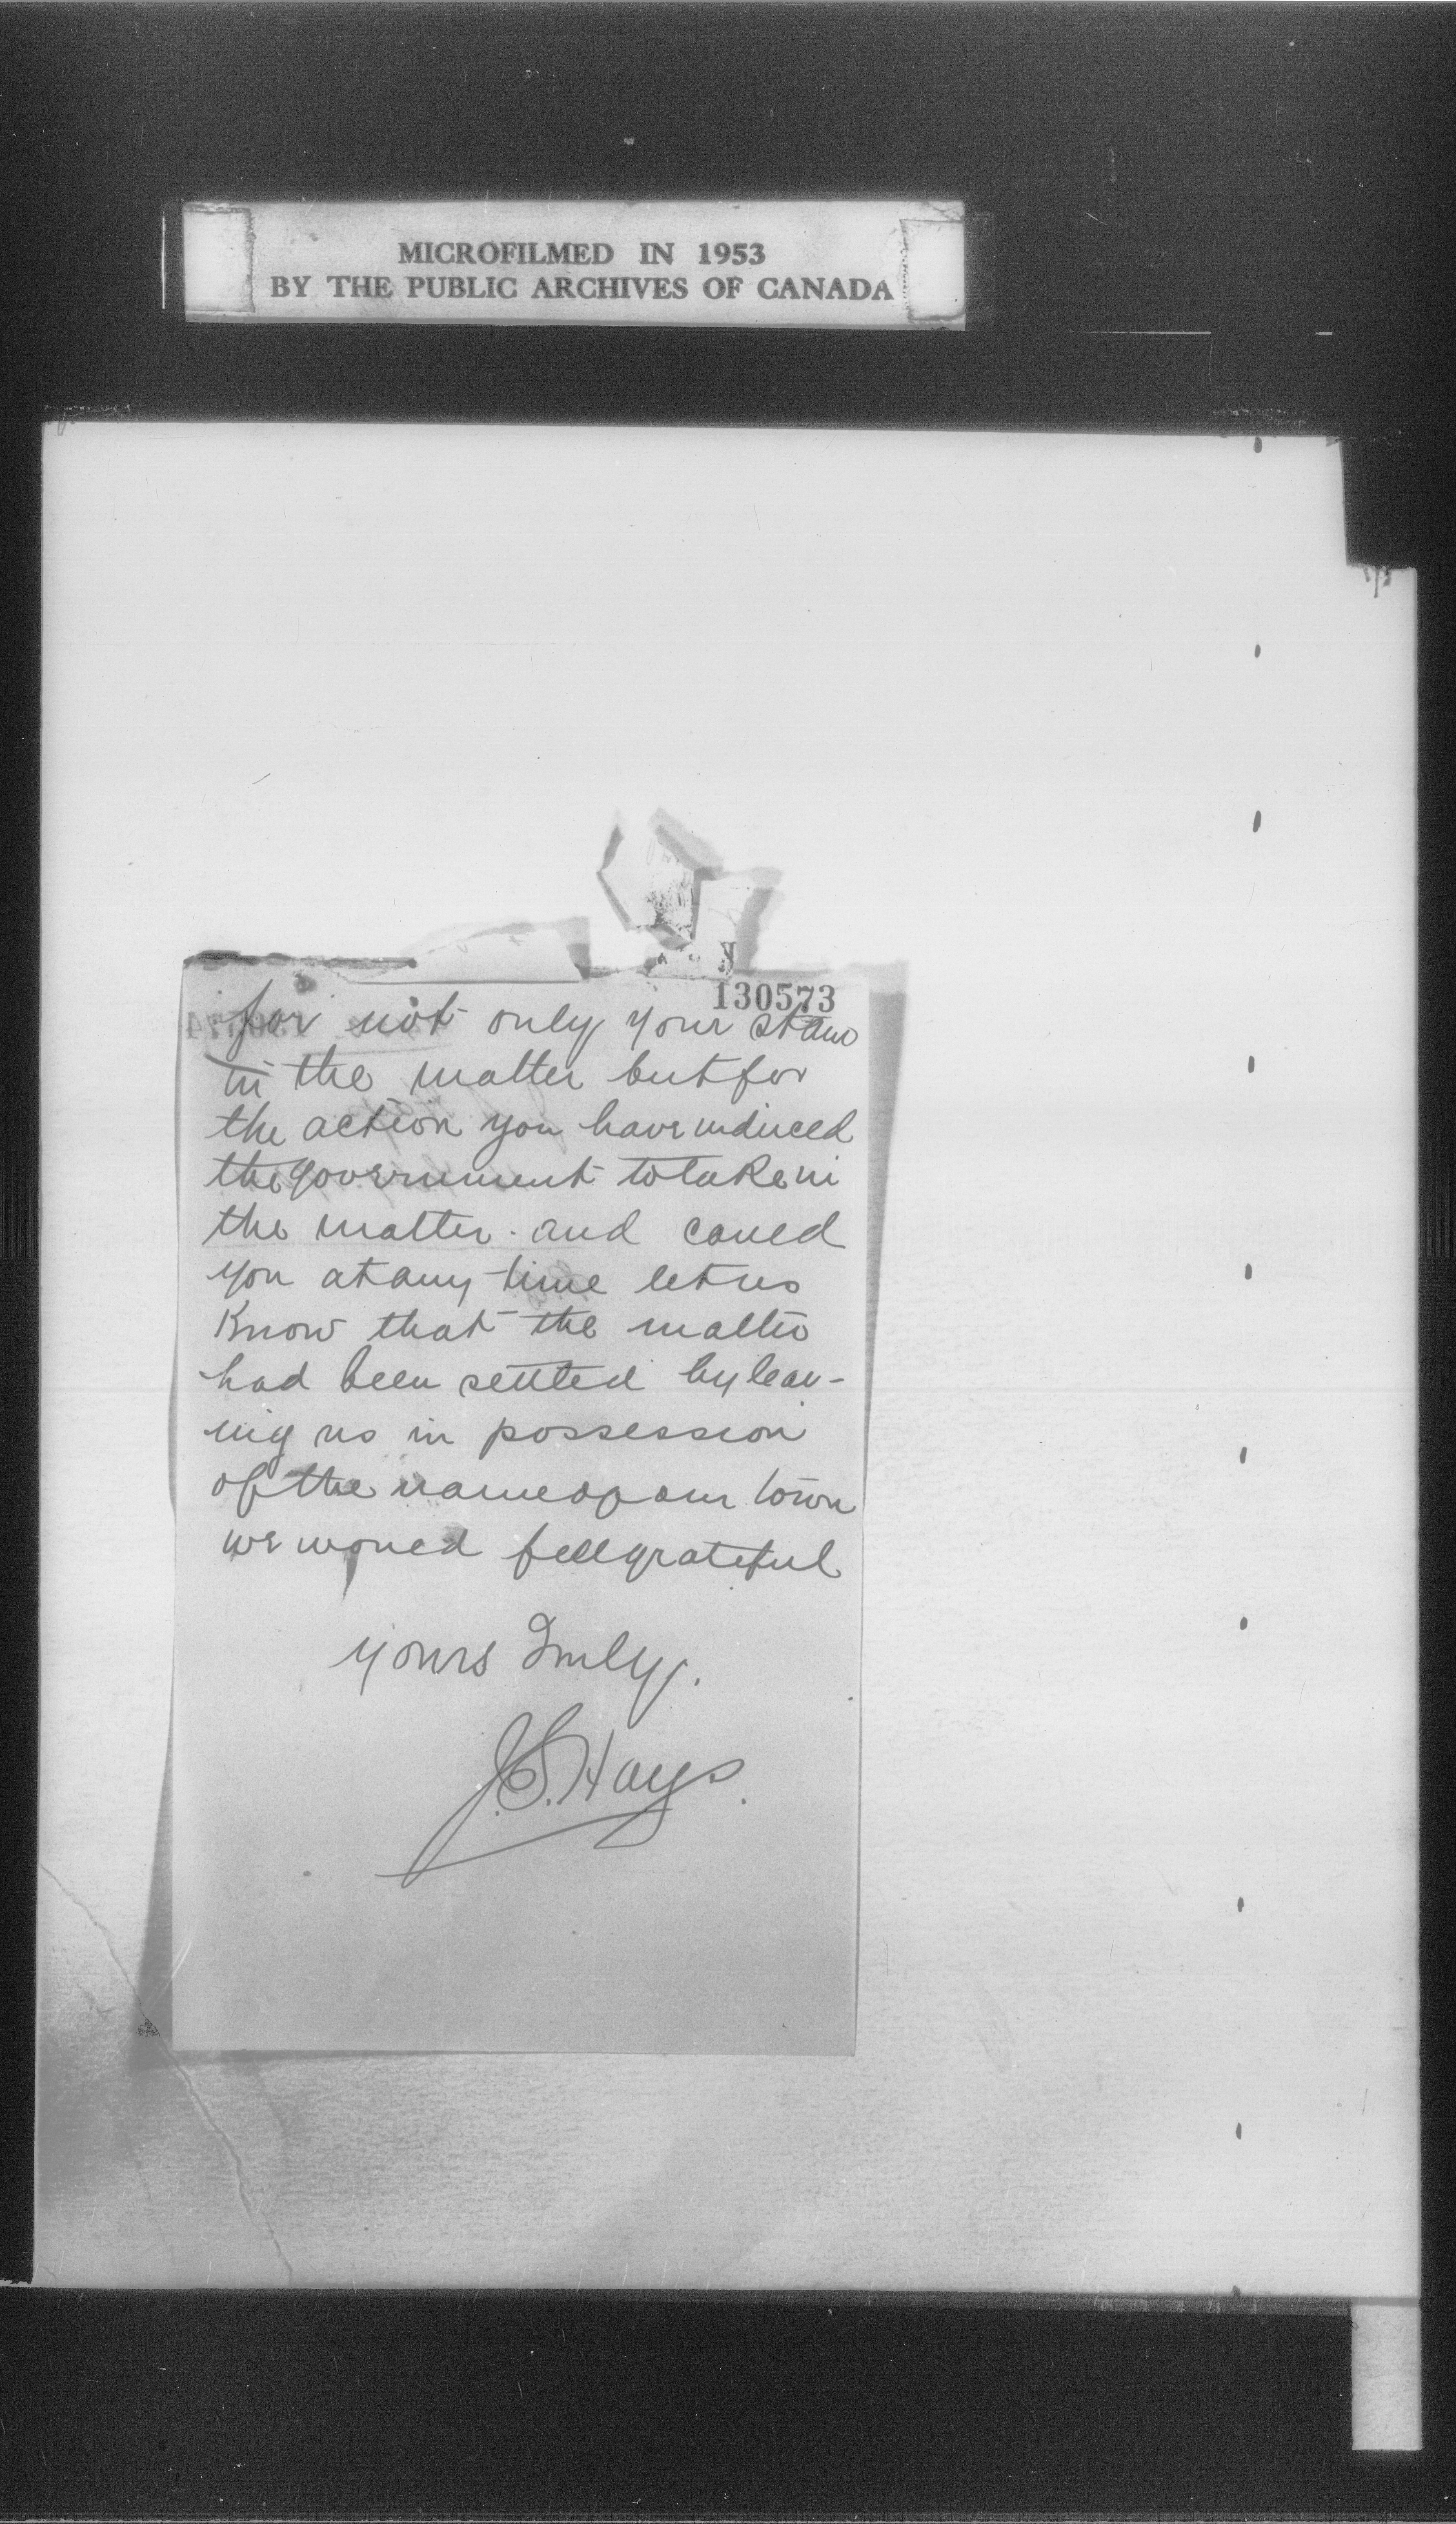 MICROFILMED IN 1953
BY THE PUBLIC ARCHIVES OF CANADA
130573
for not only your
in the matter but for
the action you have induced
the government to take in
the matter. and could
you at any time let us
Know that the matter
had been settled by leav-
ing us in possession
of the name of our town
we would fell grateful
yours Truly,.
J.S. Hays.